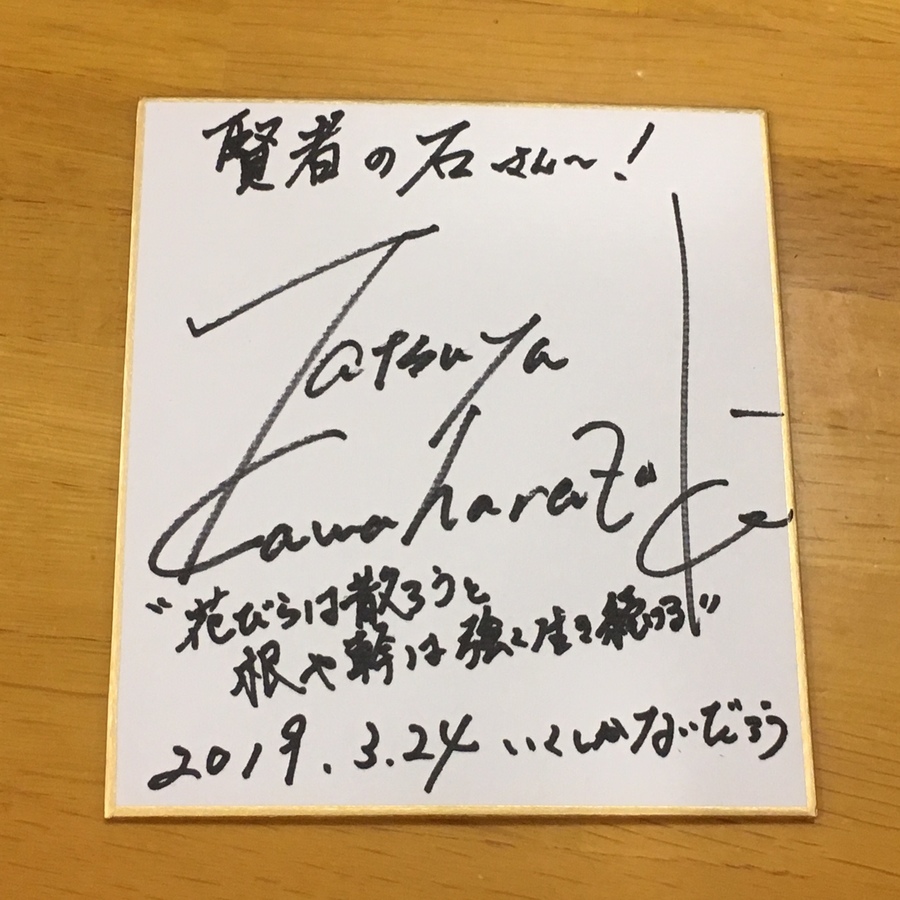 賢者の石さん～!
Tatsuya
Kawaharazuka
"花びらは散ろうと
根や幹は強く生き続ける"
2019.3.24 いくしかないだろう